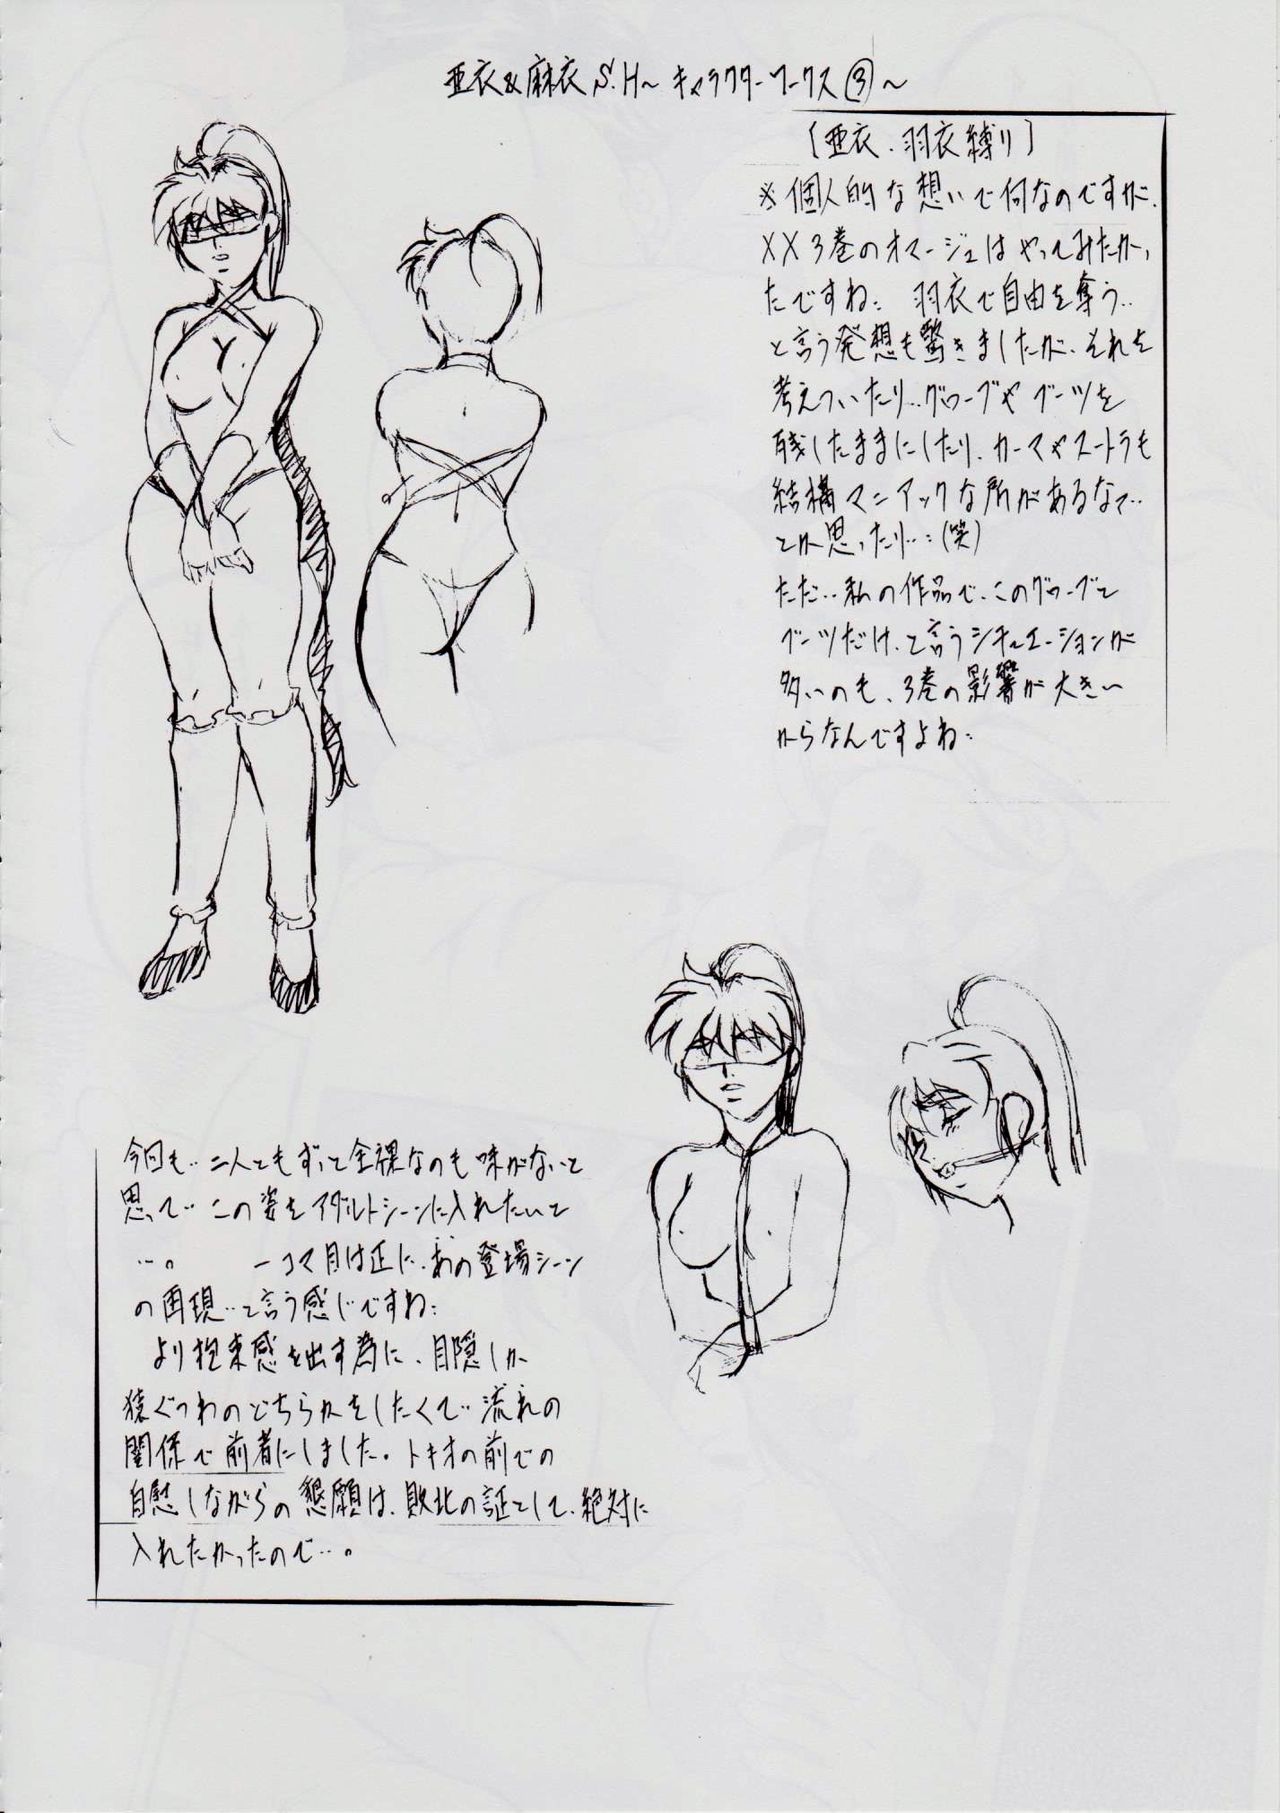 亜衣&麻衣 S.H～ キャラクターワークス③～
〔亜衣、羽衣縛り〕
※個人的な想いで何なのですが、
XX3巻のオマージュは やってみたかっ
たですね: 羽衣で自由を奪う‥
と言う発想も驚きましたが、それを
考えついたり‥グローブやブーツを
残したままにしたり、カーマやスートラも
結構マニアックな所があるなて‥
とか思ったり‥:(笑)
ただ‥私の作品で、このグローブと
ブーツだけ、と言うシチュエーションが
多いのも、3巻の影響が大きい
からなんですよね:
今回も‥二人ともずって全裸なのも味がないと
思って‥この姿をアダルトシーンに入れたいて
‥。 一コマ目は正に、あの登場シーン
の再現‥と言う感じですね:
より拘束感を出す為に、目隠しか
猿ぐつわのどちらかをしたくて‥流れの
関係で前者にしました。トキオの前での
自慰しながらの懇願は、敗北の証として、絶対に
入れたかったので‥。